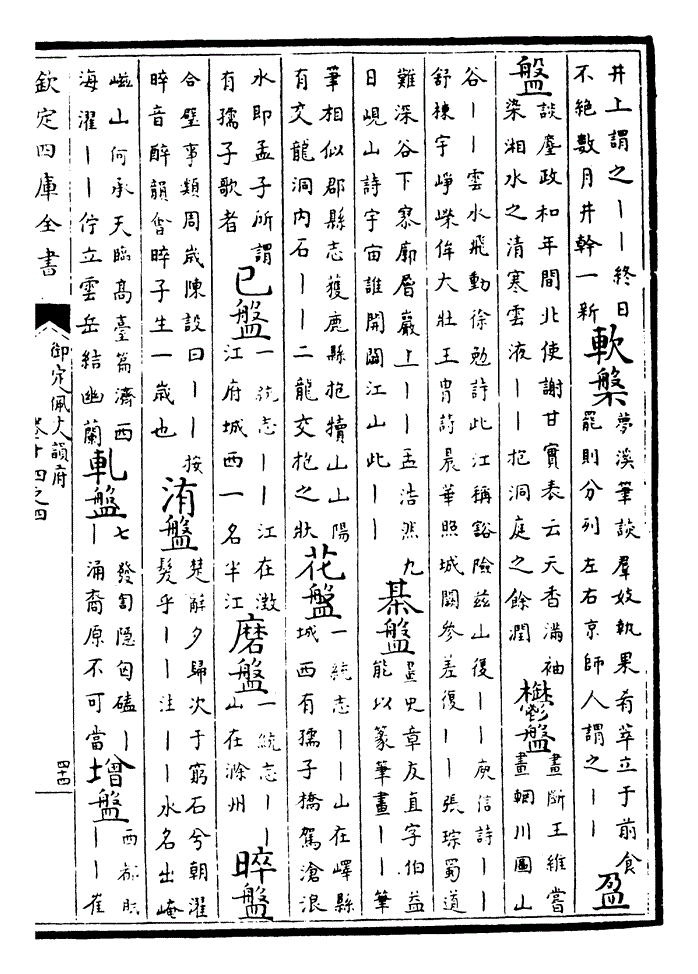 井上謂之｜｜終日
不絕數月井幹一新
軟槃
夢溪筆談羣妓執果肴萃立于前食
罷則分列左右京師人謂之｜｜
盈
盤
談塵政和年間北使謝甘實表云天香滿袖
染湘水之清寒雲液｜｜挹洞庭之餘潤
鬱盤
畫斷王維嘗
畫輞川圖山
谷｜｜雲水飛動徐勉詩此江稱豁險兹山復｜｜庾信詩｜｜
舒棟宇崢嶸侔大壯王胄詩晨華照城闕參差復｜｜張琮蜀道
難深谷下寥廓層巖上｜｜孟浩然九
日峴山詩宇宙誰開闢江山此｜｜
棊盤
畫史章友直字伯益
能以篆筆畫｜｜筆
筆相似郡縣志獲鹿縣抱犢山山陽
有交龍洞内石｜｜二龍交抱之狀
花盤
一統志｜｜山在嶧縣
城西有孺子橋駕滄浪
水即孟子所謂
有孺子歌者
已盤
一統志｜｜江在澂
江府城西一名半江
磨盤
一統志｜｜
山在滁州
晬盤
合璧事類周歲陳設曰｜｜按
晬音醉韻會晬子生一歲也
洧盤
楚辭夕歸次于窮石兮朝濯
髮乎｜｜注｜｜水名出崦
嵫山何承天臨高臺篇濟西
海濯｜｜佇立雲岳結幽蘭
軋盤
七發訇隱匈磕｜
｜涌裔原不可當
增盤
西都賦
｜｜崔
欽定四庫全書
御定佩文韻府
卷十四之四
四十四